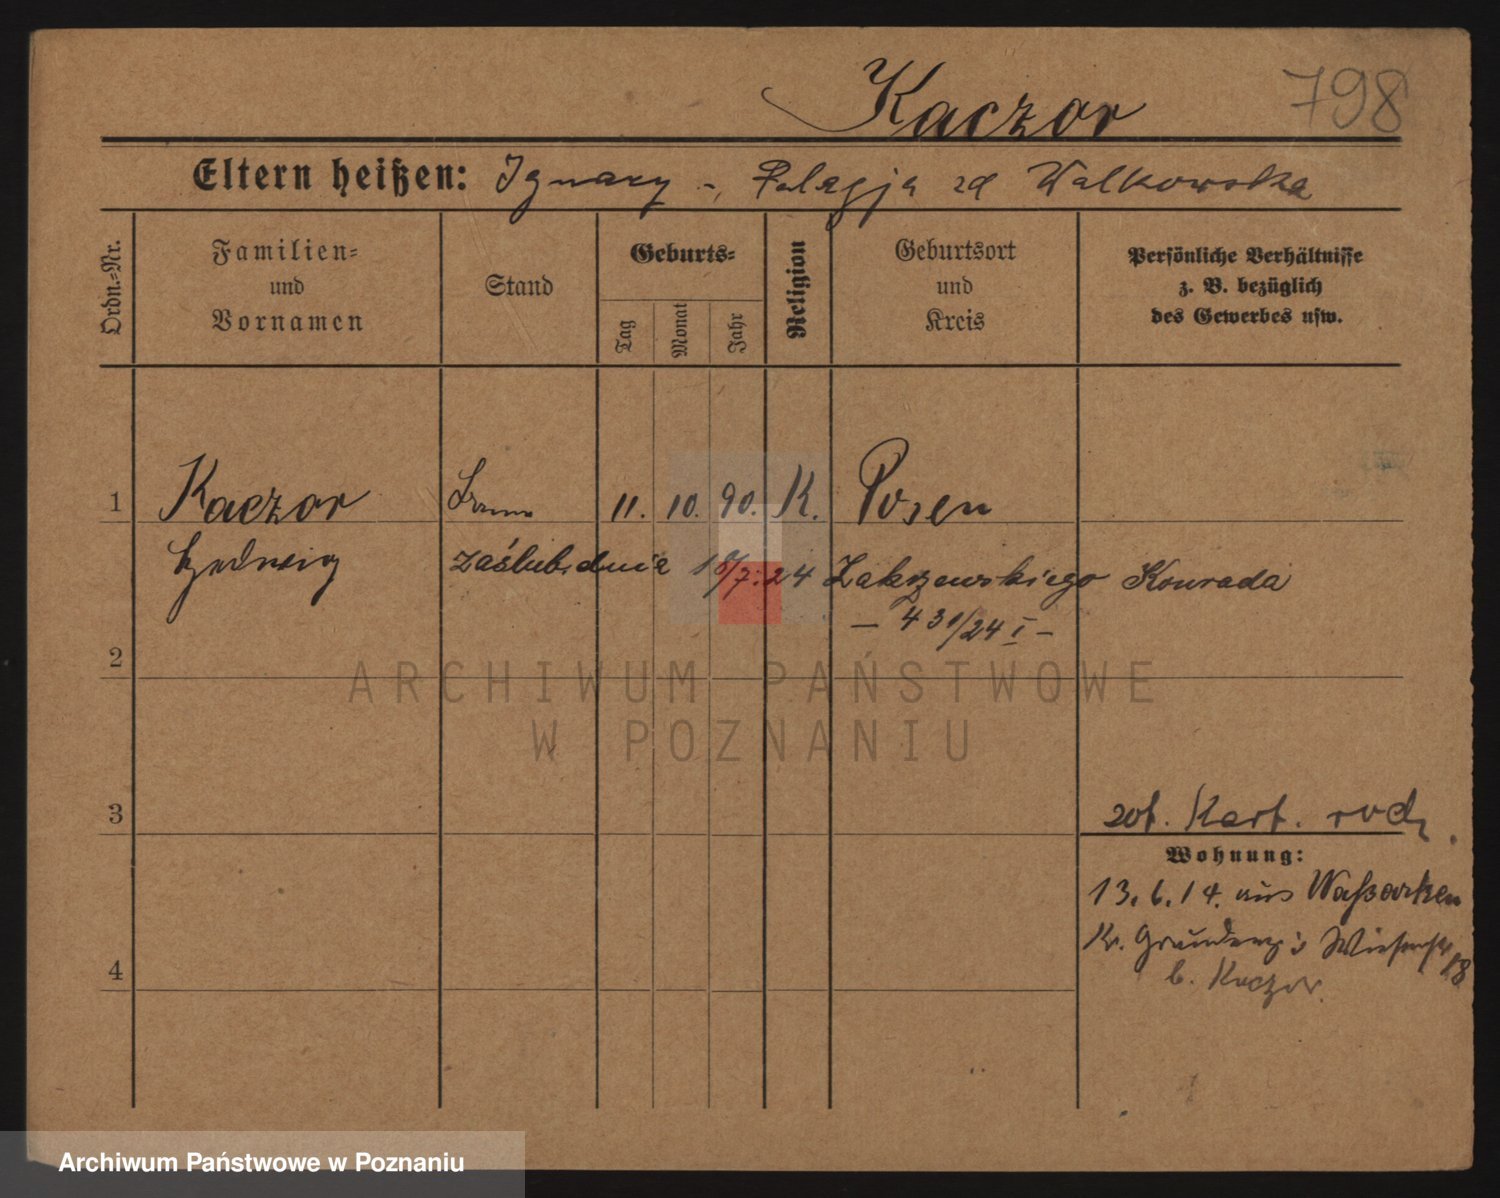 798
Kaczor
Eltern heißen: Ignacy - Pelagja zd Walkowska
Ordn.-Nr.
Familien- und Vornamen
Stand
Geburts-
Tag
Monat
Jahr
Religion
Geburtsort und Kreis
Persönliche Verhältnisse
z. B. bezüglich
des Gewerbes usw.
1 Kaczor 11. 10. 90. K. Posen
Hedwig zaślub. dnia 18/7. 24 Zakrzewskiego Konrada
— 431/24 I —
2
3
zob. Kart. rodz.
Wohnung:
13. 6. 14. aus
Kr. Graudenz 18
b. Kaczor.
4
ARCHIWUM PAŃSTWOWE
W POZNANIU
Archiwum Państwowe w Poznaniu